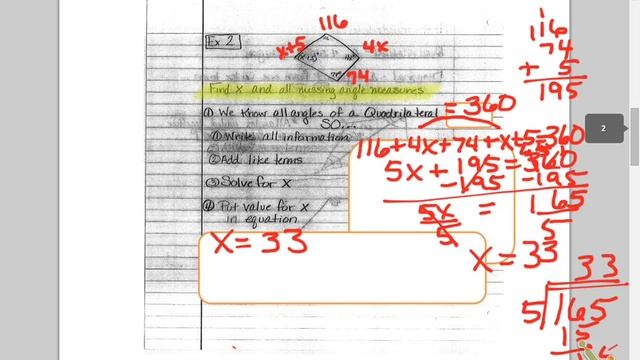 116
Ex 2
x+5
4x
74
Find x and all missing angle measures
① We know all angles of a Quadrilateral = 360
SO...
① Write all information
② Add like terms
③ Solve for x
④ Put value for x
in equation
116 + 4x + 74 + x + 5 = 360
5x + 195 = 360
-195 -195
5x = 165
5 5
x = 33
X = 33
116
74
+ 5
195
33
5 165
15
2